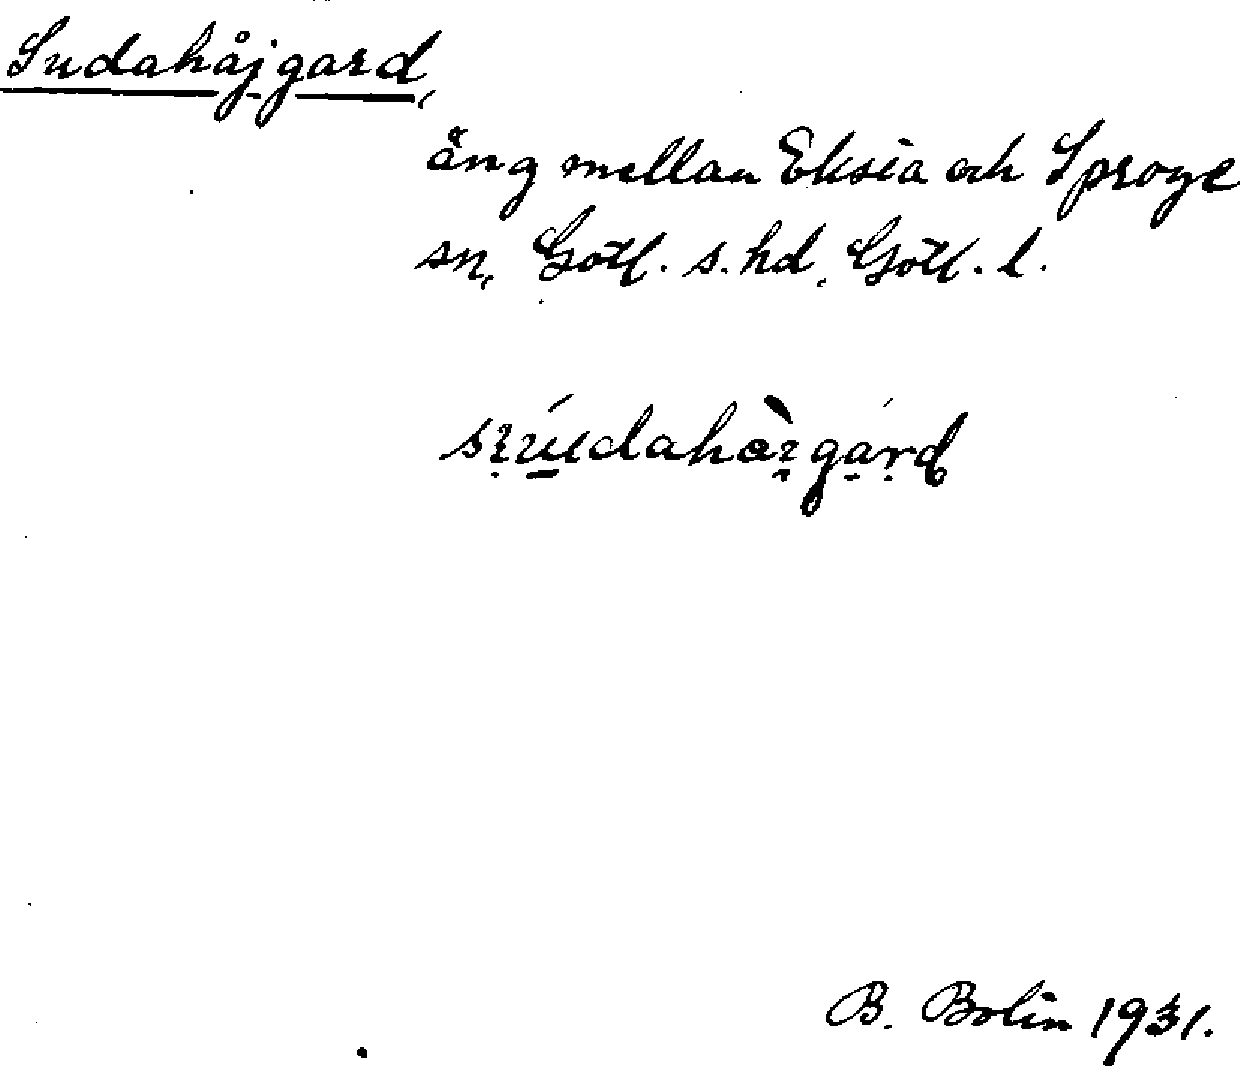 Sudahåjgard,
äng mellan Eksta och Sproge
sn, Gotl. s. hd, Gotl. l.
B. Bolin 1931.